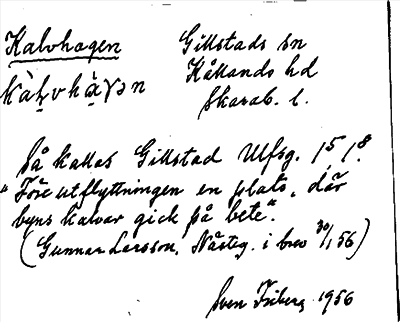 Kalvhagen Gillstads sn
kàḷvhàɣən Kållands hd
Skarab. l.
Så kallas Gillstad Ulfsg. 1⁵, 1⁸.
"Före utflyttningen en plats, där
byns kalvar gick på bete".
(Gunnar Larsson, Nästeg. i brev 30/1 56)
Sven Friberg 1956